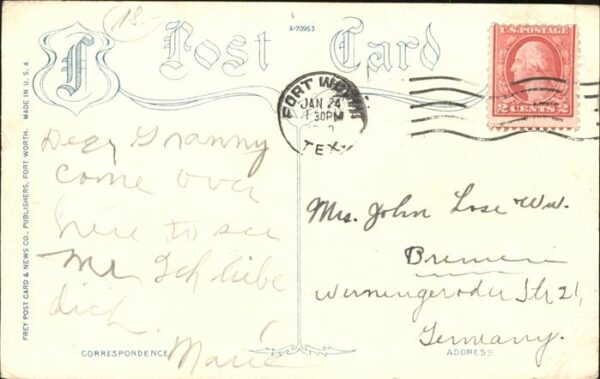 18.-
A-70953
Post Card
FORT WORTH
JAN 24
1 30PM
TEX.
U.S. POSTAGE
2 CENTS 2
MADE IN U. S. A
FREY POST CARD & NEWS CO., PUBLISHERS, FORT WORTH.
Dear Granny
come over
here to see
Me Ich liebe
dich.
Marie
Mrs. John Lose Ww.
Bremen
Werningeroder Str 21,
Germany.
CORRESPONDENCE
ADDRESS